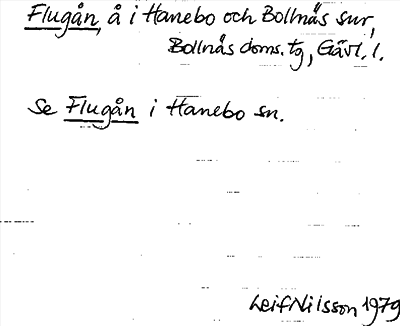 Flugån, å i Hanebo och Bollnäs snr,
Bollnäs doms. tg, Gävl. l.
Se Flugån i Hanebo sn.
Leif Nilsson 1979